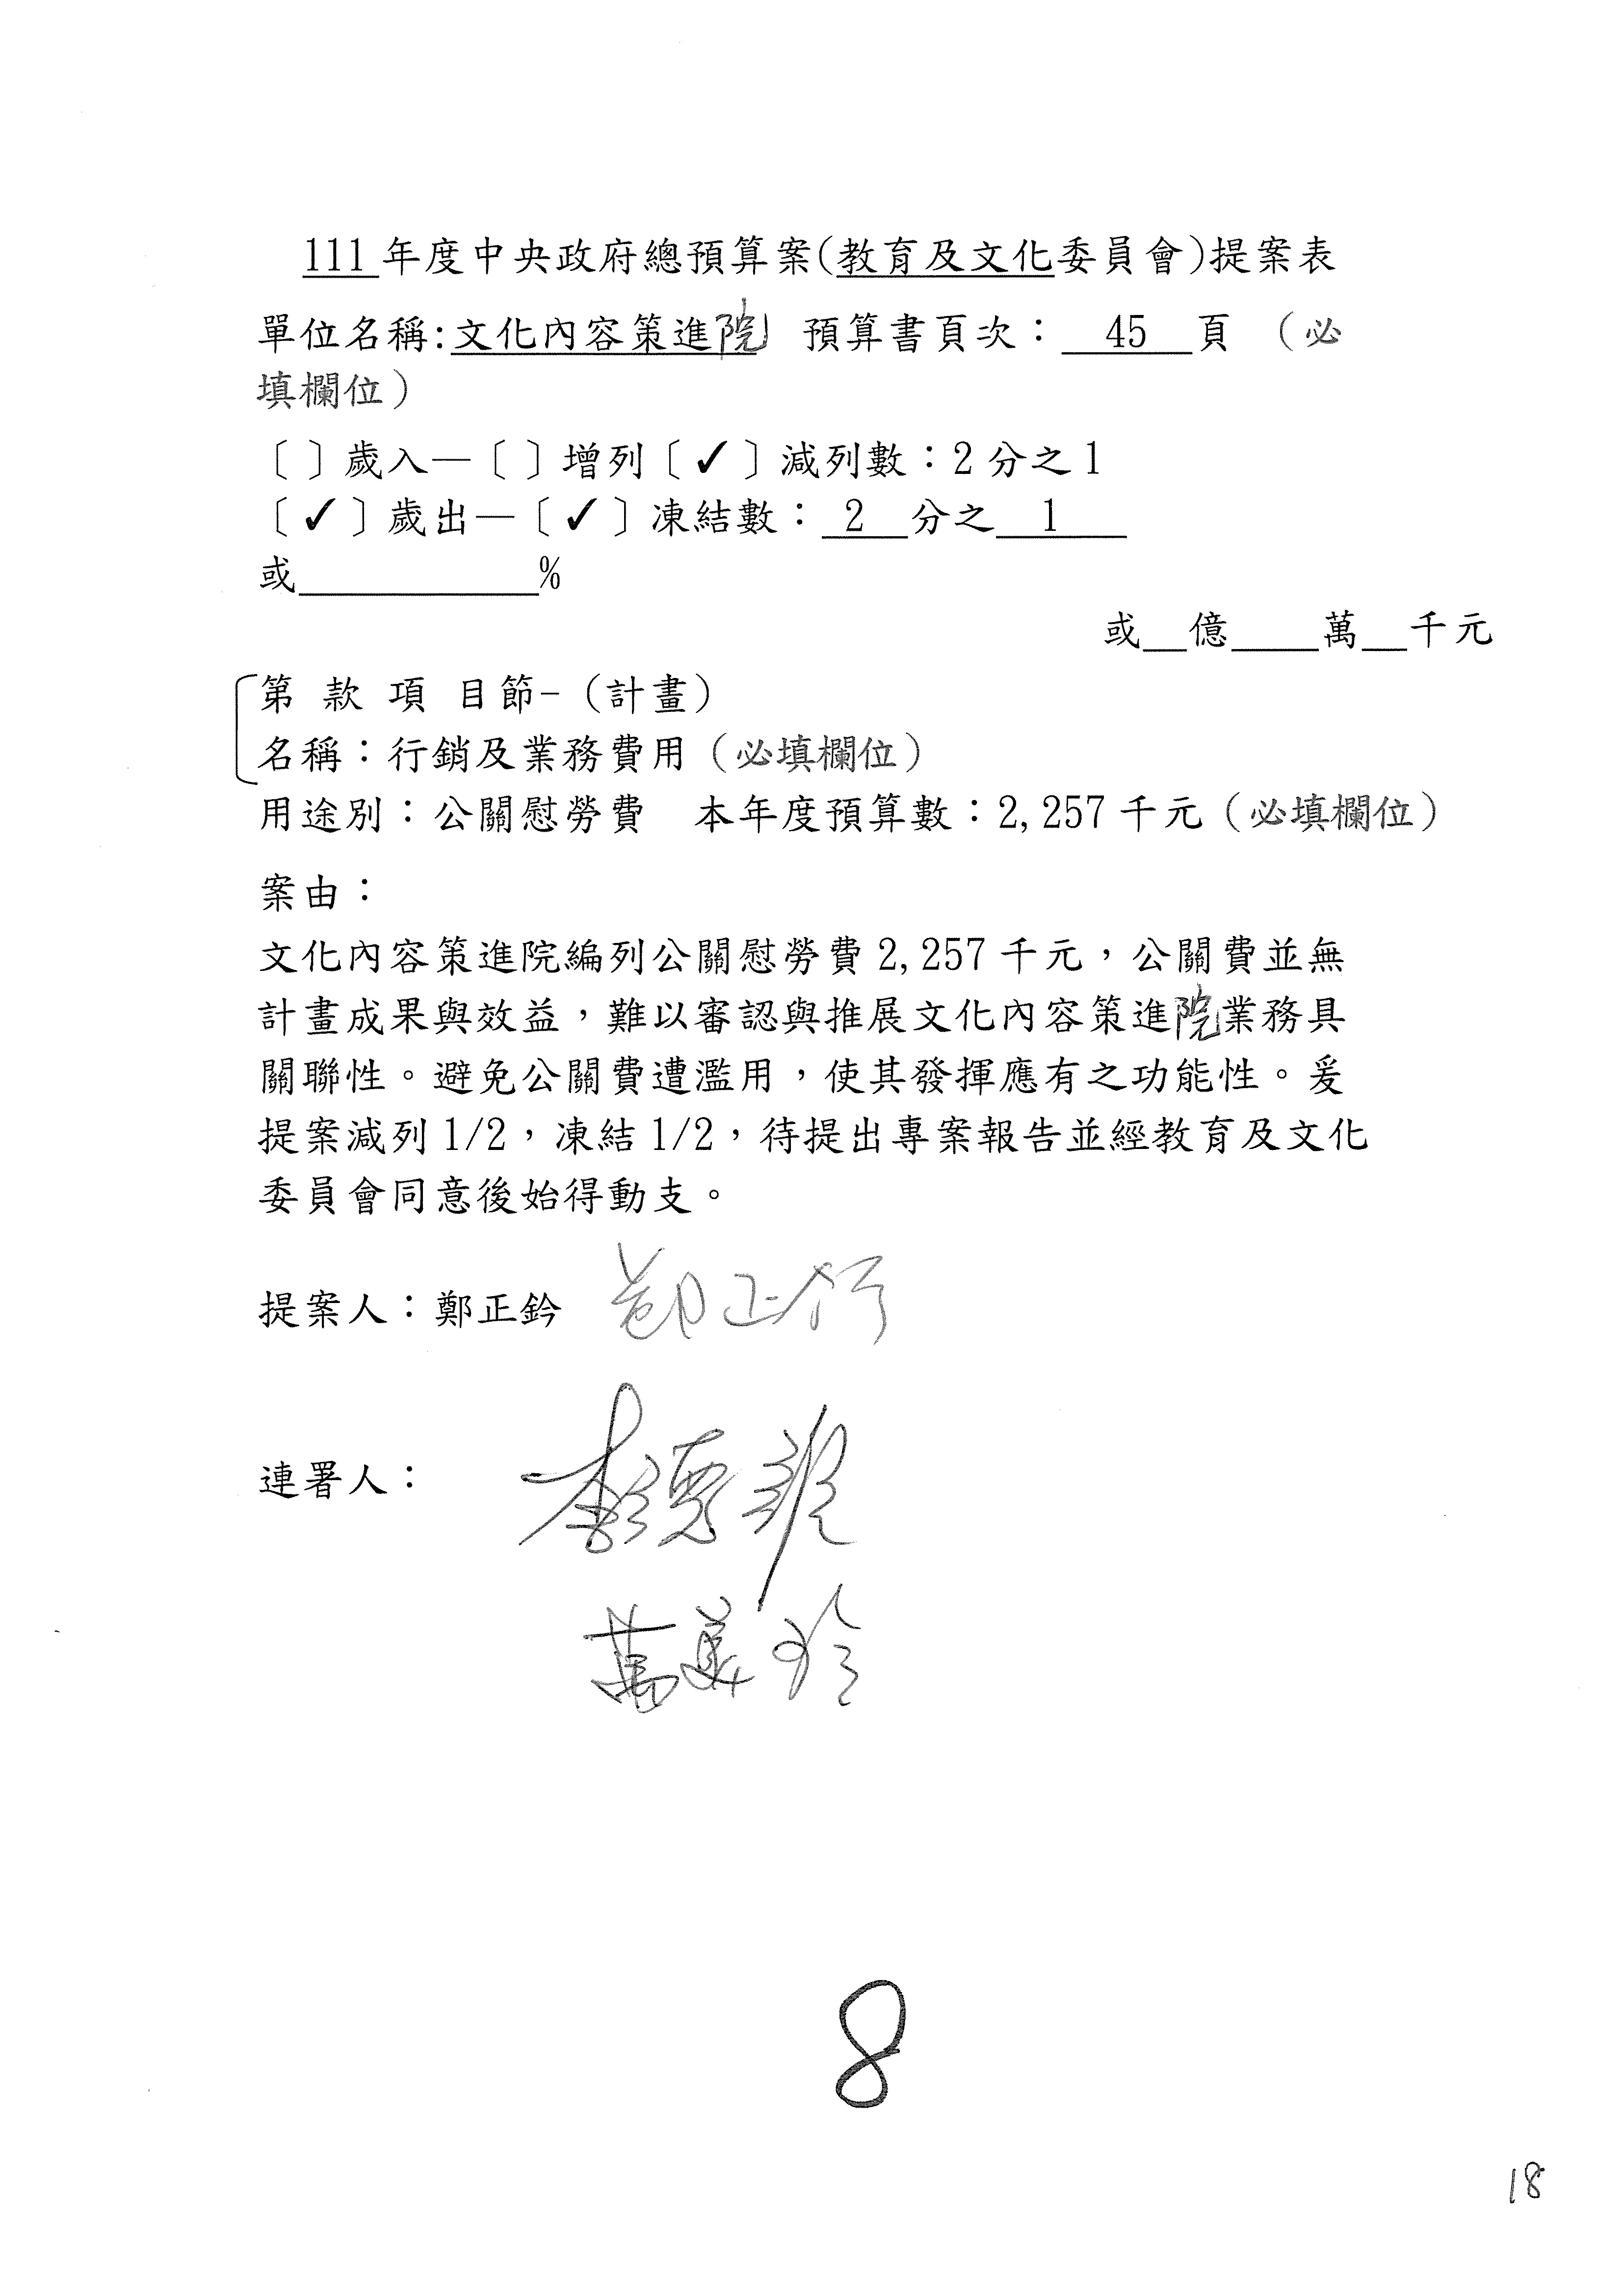 111年度中央政府總預算案(教育及文化委員會)提案表
單位名稱:文化內容策進院 預算書頁次： 45 頁 （必
填欄位）
〔 〕歲入—〔 〕增列〔✓〕減列數：2分之1
〔✓〕歲出—〔✓〕凍結數： 2 分之 1
或___________%
或__億____萬__千元
第 款 項 目節-（計畫）
名稱：行銷及業務費用（必填欄位）
用途別：公關慰勞費 本年度預算數：2,257千元（必填欄位）
案由：
文化內容策進院編列公關慰勞費2,257千元，公關費並無
計畫成果與效益，難以審認與推展文化內容策進院業務具
關聯性。避免公關費遭濫用，使其發揮應有之功能性。爰
提案減列1/2，凍結1/2，待提出專案報告並經教育及文化
委員會同意後始得動支。
提案人：鄭正鈐 鄭正鈐
連署人：
李德維
萬美玲
8
18